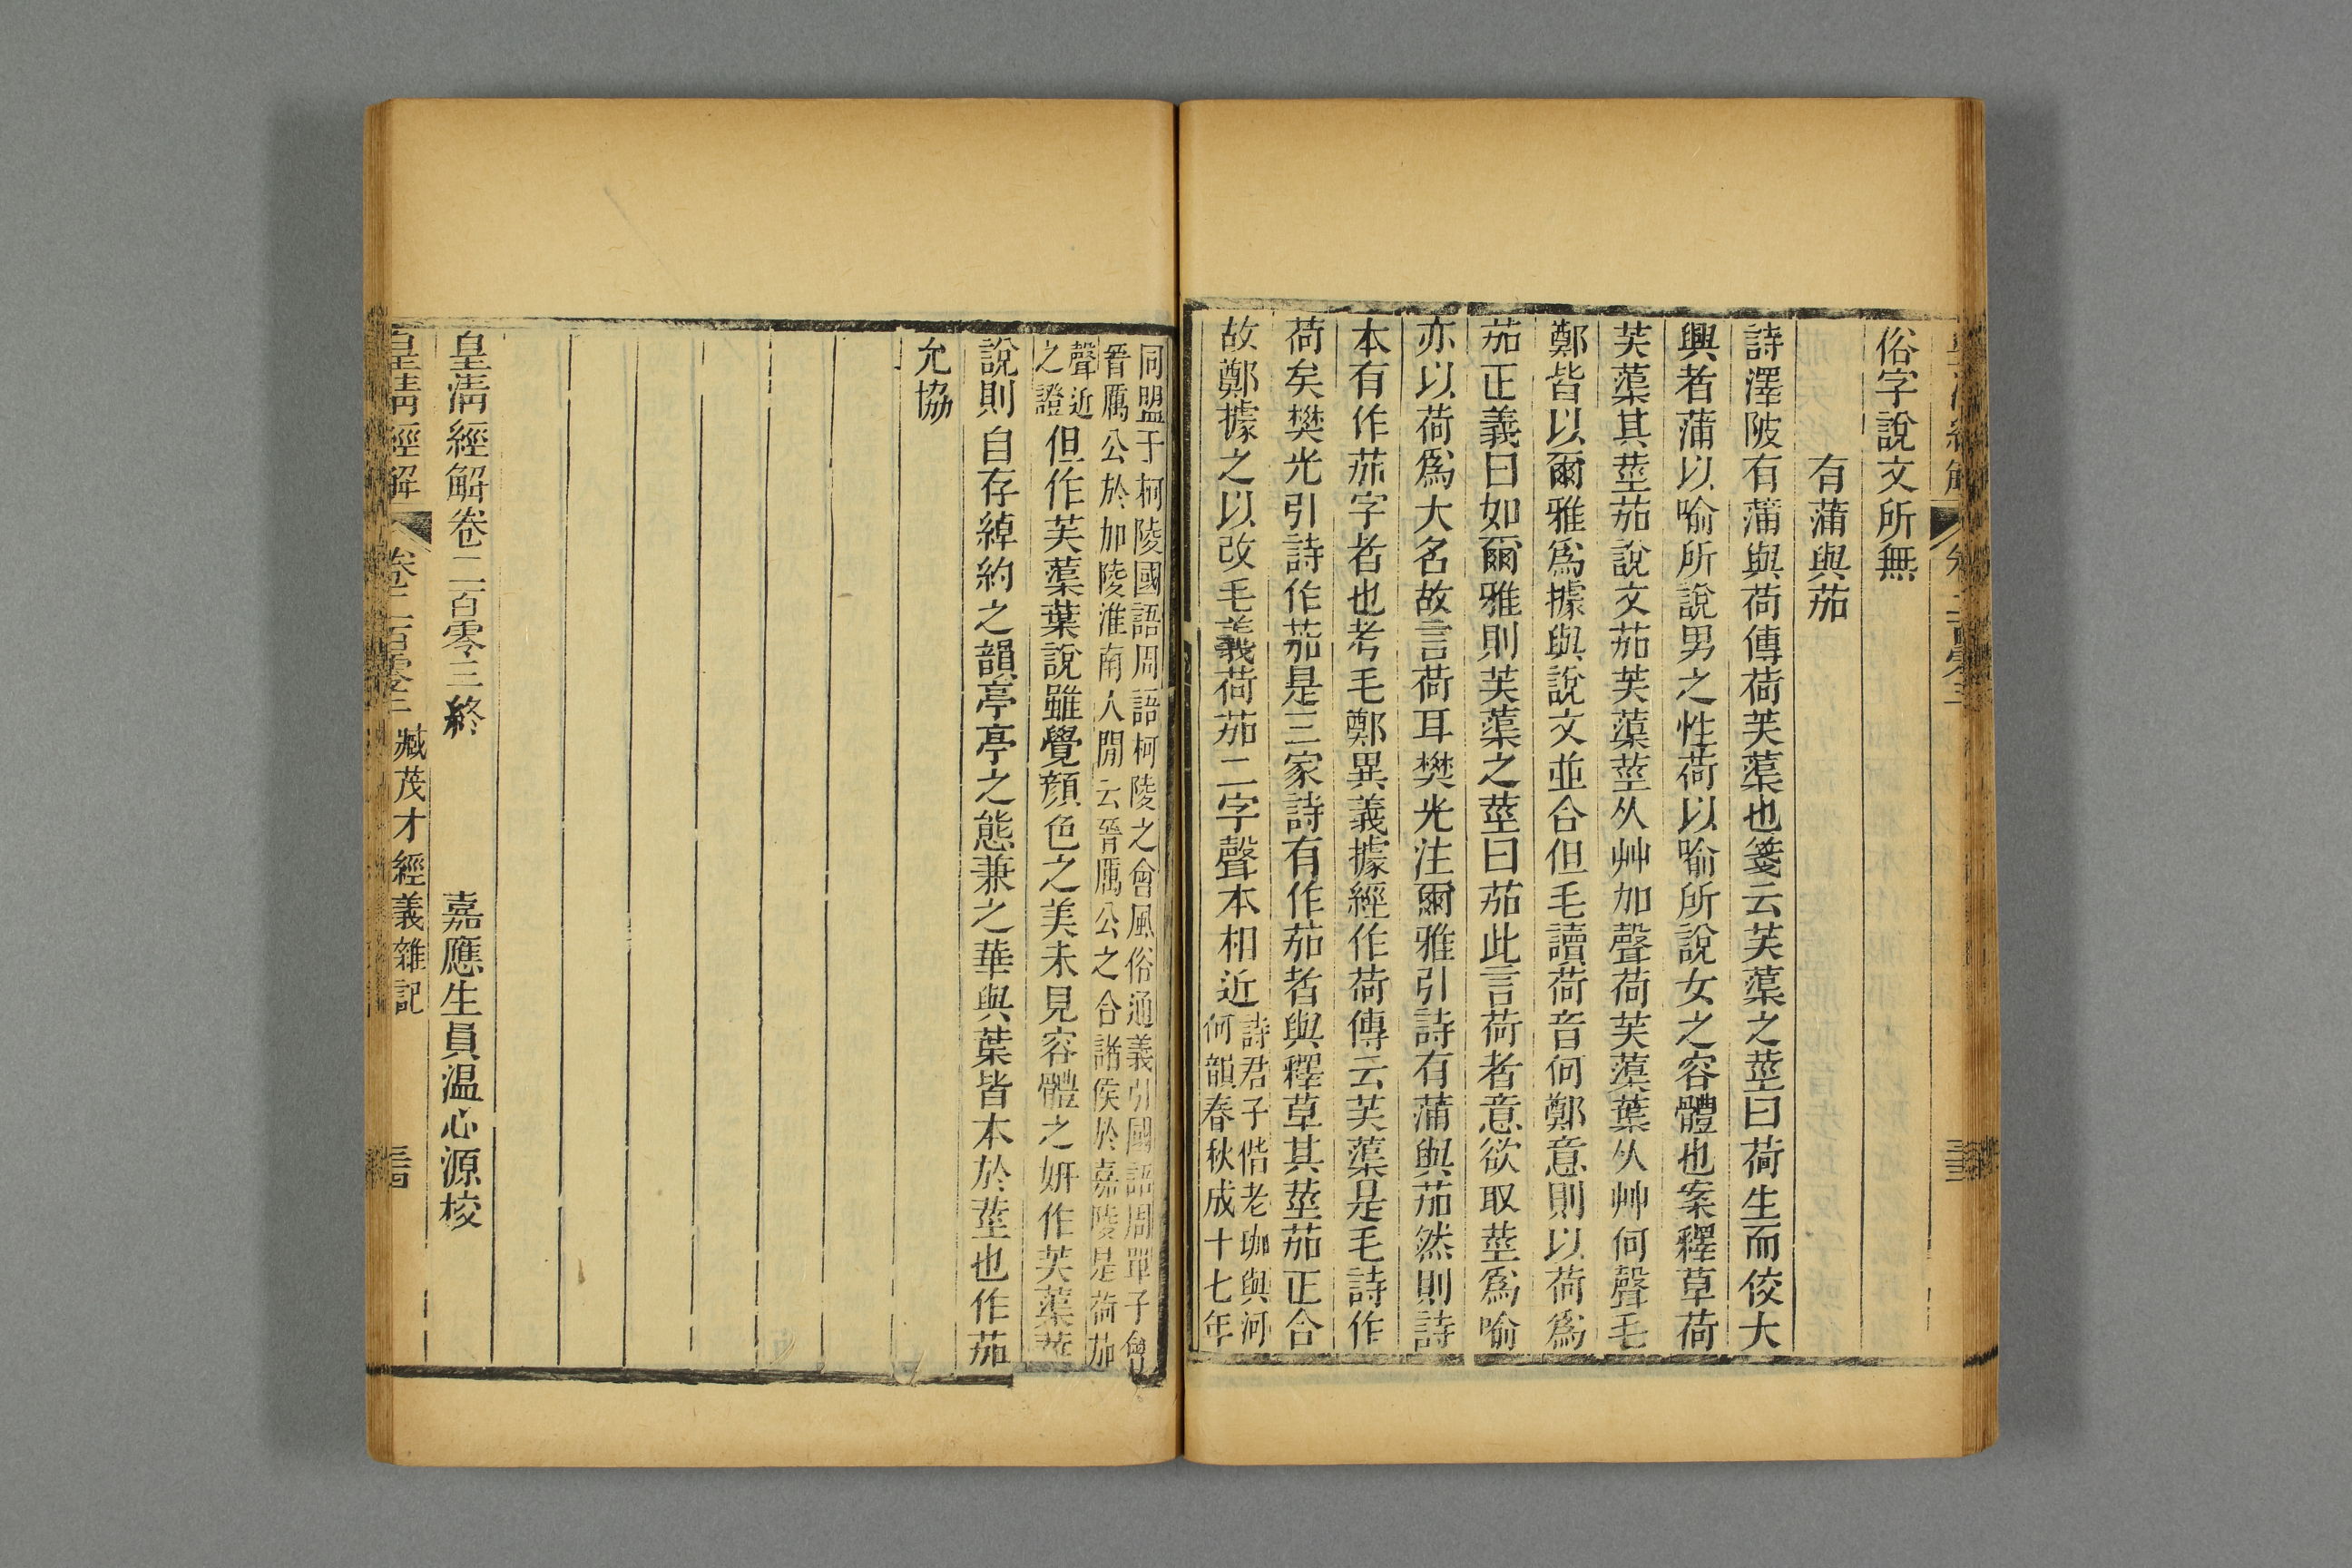 俗字說文所無
有蒲與茄
詩澤陂有蒲與荷傳荷芙蕖也箋云芙蕖之莖曰荷生而佼大
興者蒲以喻所說男之性荷以喻所說女之容體也案釋草荷
芙蕖其莖茄說文茄芙蕖莖从艸加聲荷芙蕖葉从艸何聲毛
鄭皆以爾雅爲據與說文並合但毛讀荷音何鄭意則以荷爲
茄正義曰如爾雅則芙蕖之莖曰茄此言荷者意欲取莖爲喻
亦以荷爲大名故言荷耳樊光注爾雅引詩有蒲與茄然則詩
本有作茄字者也考毛鄭異義據經作荷傳云芙蕖是毛詩作
荷矣樊光引詩作茄是三家詩有作茄者與釋草其莖茄正合
故鄭據之以改毛義荷茄二字聲本相近詩君子偕老珈與河
何韻春秋成十七年
同盟于柯陵國語周語柯陵之會風俗通義引國語周單子會
晉厲公於加陵淮南人閒云晉厲公之合諸侯於嘉陵是荷茄
聲近
之證但作芙蕖葉說雖覺顏色之美未見容體之妍作芙蕖莖
說則自存綽約之韻亭亭之態兼之華與葉皆本於莖也作茄
允協
皇淸經解卷二百零三終
嘉應生員温心源校
皇淸經解
卷二百零三
臧茂才經義雜記